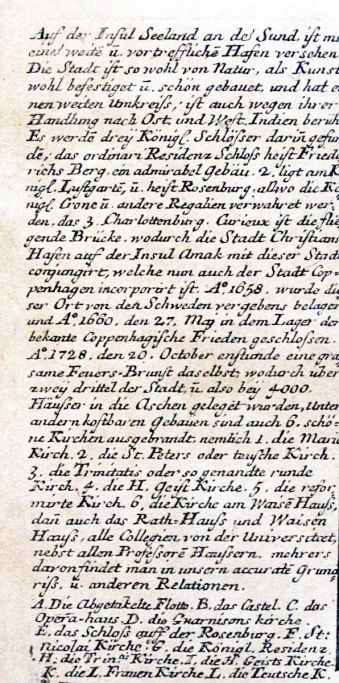 Auf der Insul Seeland an de Sund, ist m
eine weite ū. vortreffliche Hafen versehen
Die Stadt ist so wohl von Natur, als Kunst
wohl befestiget ū. schön gebauet, und hat e
nen weiten Umkreiß, ist auch wegen ihrer
Handlung nach Ost, und West, Indien berüh
Es werdē drey Königl. Schlösser darin gefun
de, das ordinari Residenz Schloß heist Fried
richs Berg, ein admirabel Gebäu. 2. ligt am K
nigl. Lustgartē, ū. heist Rosenburg, allwo die Kö
nigl. Crone ū. andere Regalien verwahret wer
den, das 3. Charlottenburg. Curieux ist die flie
gende Brücke, wodurch die Stadt Christians
Hafen auf der Insul Amak mit dieser Stad
conjungirt, welche nun auch der Stadt Cop-
penhagen incorporirt ist. Aº 1658. wurde die
ser Ort von den Schweden vergebens belager
und Aº 1660. den 27. Maj in dem Lager der
bekante Coppenhagische Frieden geschlossen.
Aº 1728. den 20. October enstunde eine gra
same Feuers-Brunst daselbst; wodurch über
zwey drittel der Stadt, ū. also bey 4000.
Häuser in die Aschen geleget wurden, Unter
andern kostbaren Gebäuen sind auch 6. schö-
ne Kirchen ausgebrandt, nemlich 1. die Mariē
Kirch. 2. die St. Peters oder teutsche Kirch.
3. die Trinitatis oder so genandte runde
Kirch. 4. die H. Geist Kirche. 5. die refor-
mirte Kirch. 6. die Kirche am Waisē Hauß,
dañ auch das Rath-Hauß und Waisen
Hauß, alle Collegien von der Universitaet,
nebst allen Professorē Haussern. mehrers
davon findet man in unsern accuratē Grund
riß, ū. anderen Relationen.
A. Die Abgetakelte Flotte. B. das Castel. C. das
Opera-haus. D. die Guarnisons kirche
E. das Schloß auff der Rosenburg. F. St:
Nicolai Kirche. G. die Königl. Residenz.
H. die Trin: Kirche. I. die H. Geists Kirche
K. die L. Frauen Kirche. L. die Teutsche K.